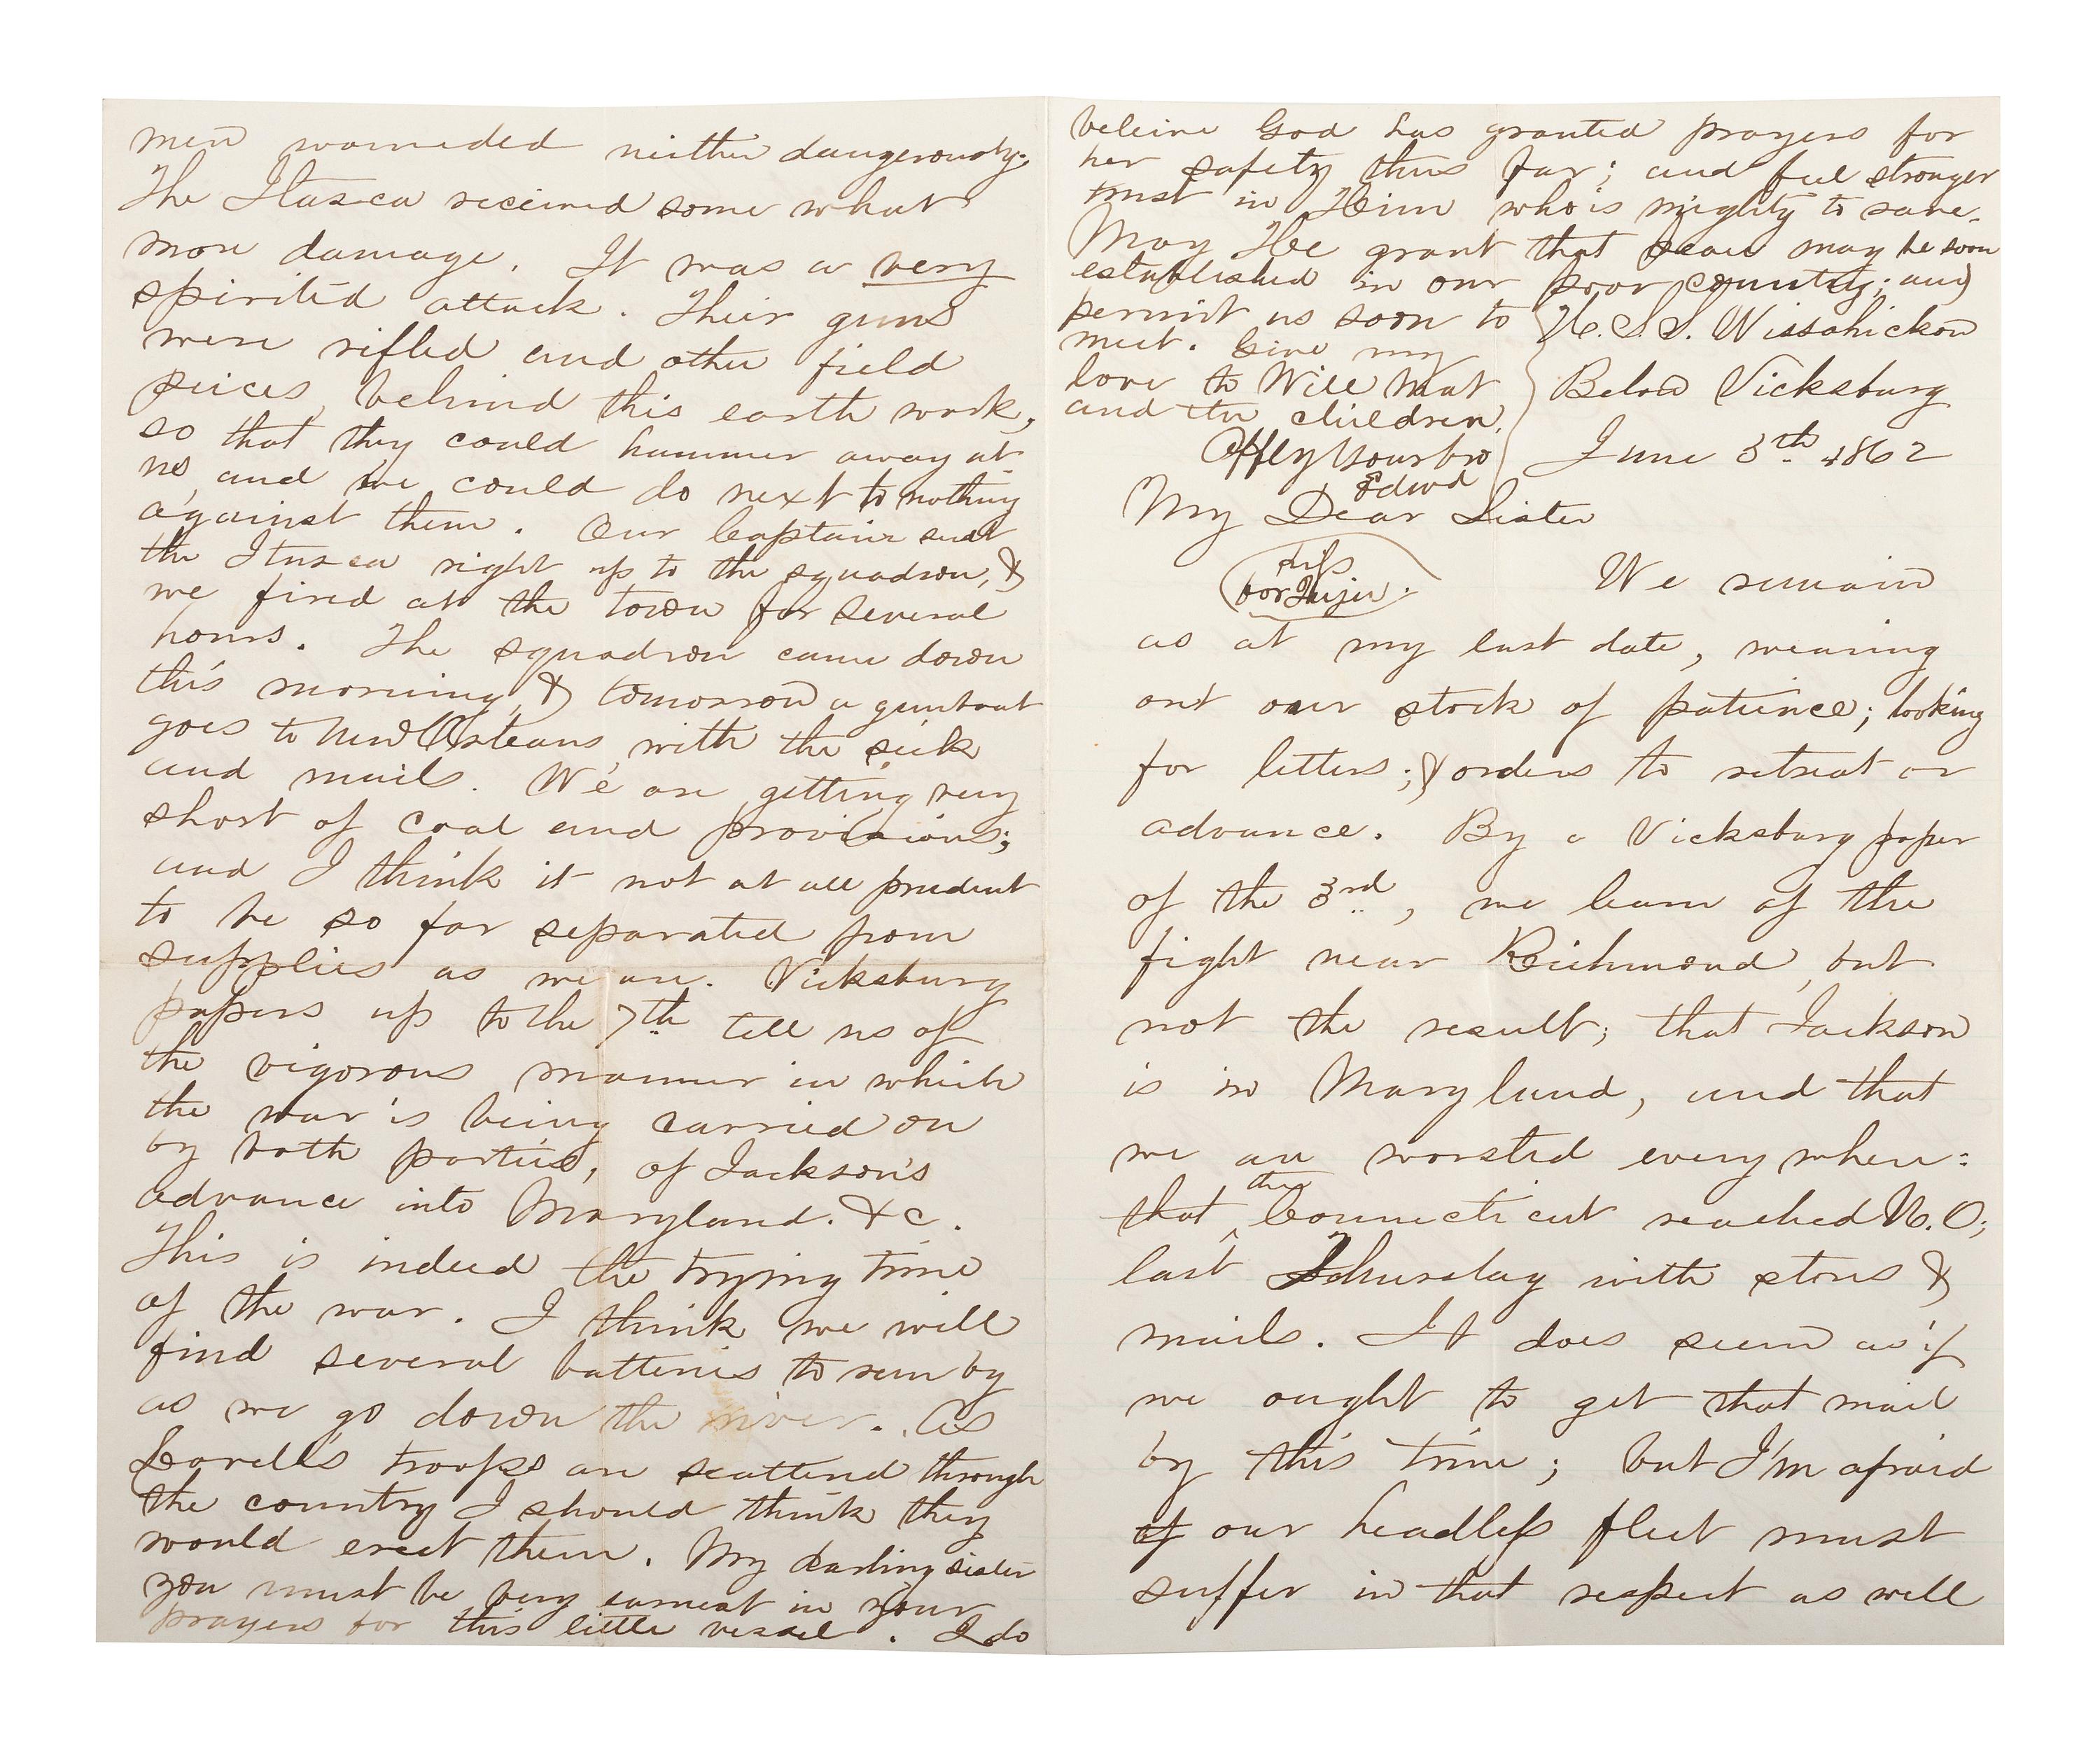 men wounded neither dangerously.
The Itasca received some what
more damage. It was a very
spirited attack. Their guns
were rifled and other field
peices, behind this earth work,
so that they could hammer away at
us, and we could do next to nothing
against them. Our Captain sent
the Itasca right up to the squadron, &
we fired at the town for several
hours. The squadron came down
this morning, & tomorrow a gunboat
goes to New Orleans, with the sick
and mails. We are getting very
short of coal and provisions;
and I think it not at all prudent
to be so far separated from
supplies as we are. Vicksburg
papers up to the 7th tell us of
the vigorous manner in which
the war is being carried on
by both parties, of Jackson's
advance into Maryland. &c.
This is indeed the trying time
of the war. I think we will
find several batteries to run by
as we go down the river. As
Lovell's troops are scattered through
the country I should think they
would erect them. My darling sister
you must be very earnest in your
prayers for this little vessel. I do
beleive God has granted prayers for
her safety thus far; and feel stronger
trust in Him who is mighty to save.
May He grant that peace may be soon
established in our poor country; and
permit us soon to
meet. Give my
love to Will Mat
and the children.
Affly Your bro
Edwd
U.S.S. Wissahickon
Below Vicksburg
June 3th 1862
My Dear Sister
We remain
as at my last date, wearing
out our stock of patience; looking
for letters; & orders to retreat or
advance. By a Vicksburg paper
of the 3rd, we learn of the
fight near Richmond, but
not the result; that Jackson
is in Maryland, and that
we are worsted every where:
that the Connecticut reached N.O;
last Thursday with stores &
mails. It does seem as if
we ought to get that mail
by this time; but I'm afraid
of our headless fleet must
suffer in that respect as well